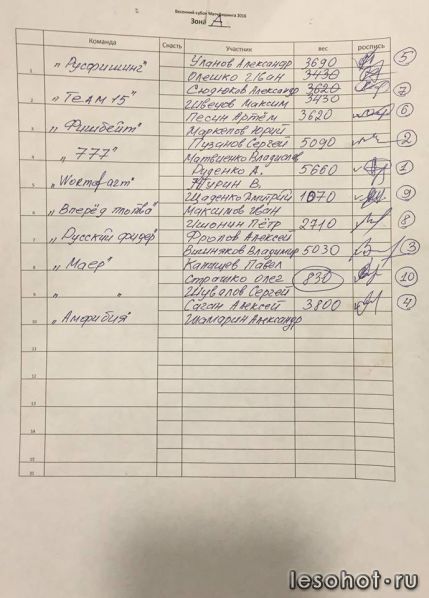 Весенний кубок Матчфишинга 2016
Зона А
Команда Снасть Участник вес роспись
1 „Русфишинг" Уланов Александр 3690 5
Олешко Иван 3430
2 „Team 15" Сюдюков Александр 3620 7
Швецов Максим 3430
3 „Фишбейт" Песин Артём 3620 6
Маркелов Юрий
4 „777" Пузанов Сергей 5090 2
Матвиенко Владислав
5 Руденко А. 5660 1
Тюрин В.
6 „Вперёд плотва" Щаденко Дмитрий 1070 9
Максимов Иван
7 „Русский фидер" Ишонин Пётр 2710 8
Фролов Алексей
8 „Маер" Вишняков Владимир 5030 3
Капищев Павел
9 „ " Страшко Олег 830 10
Шувалов Сергей
10 „Амфибия" Саган Алексей 3800 4
Шамарин Александр
11
12
13
14
15
lesohot.ru